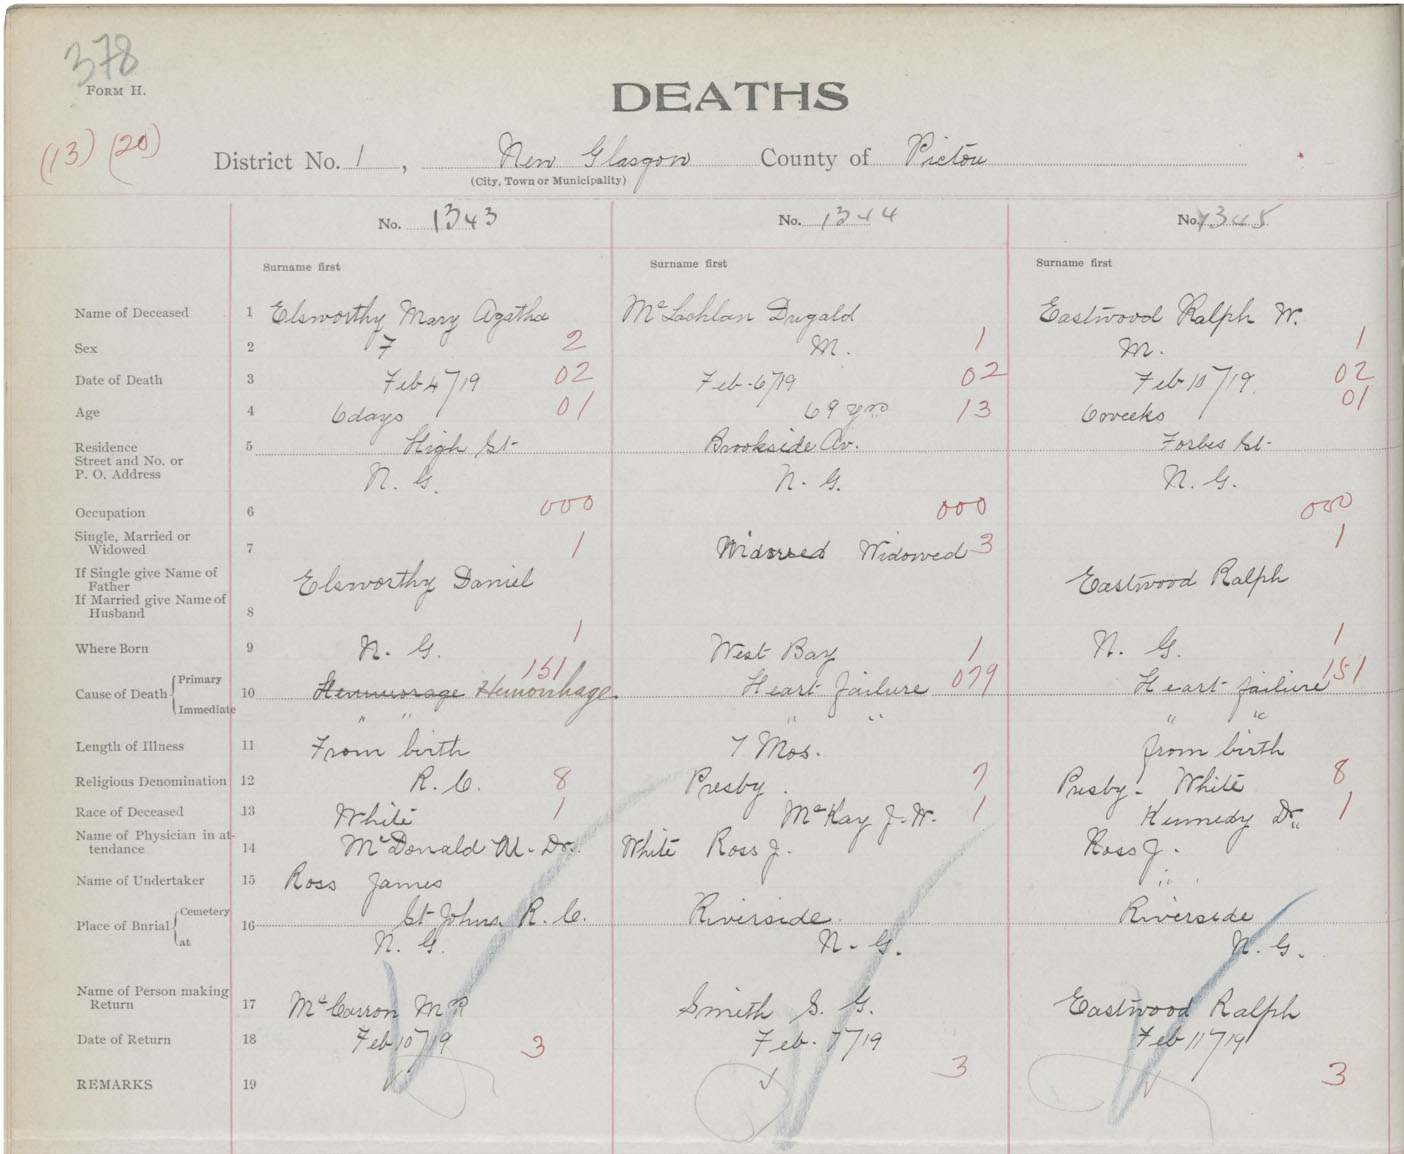 378
FORM H.
DEATHS
(13) (20)
District No. 1, New Glasgow County of Pictou
(City, Town or Municipality)
No. 1343 No. 1344 No. 1345
Surname first Surname first Surname first
Name of Deceased 1 Elsworthy Mary Agatha McLachlan Dugald Eastwood Ralph W.
Sex 2 F 2 M. 1 M. 1
Date of Death 3 Feb 4/19 02 Feb-6/19 02 Feb 10/19 02
Age 4 6 days 01 69 yrs 13 6 weeks 01
Residence 5 High St- Brookside Av. Forbes St-
Street and No. or
P. O. Address N. G. N. G. N. G.
Occupation 6 000 000 000
Single, Married or
Widowed 7 1 Widowed Widowed 3 1
If Single give Name of
Father Elsworthy Daniel Eastwood Ralph
If Married give Name of
Husband 8
Where Born 9 N. G. 1 West Bay 1 N. G. 1
Cause of Death Primary 10 Hemmorage Hemorrhage. 151 Heart failure 079 Heart failure 151
Immediate " " " " " "
Length of Illness 11 From birth 7 Mos. from birth
Religious Denomination 12 R. C. 8 Presby. 7 Presby- White 8
Race of Deceased 13 White 1 McKay J. W. 1 Kennedy Dr. 1
Name of Physician in at-
tendance 14 McDonald M. Dr. White Ross J. Ross J.
Name of Undertaker 15 Ross James " "
Place of Burial Cemetery 16 St Johns R. C. Riverside Riverside
at N. G. N. G. N. G.
Name of Person making
Return 17 McCarron M R Smith S. G. Eastwood Ralph
Date of Return 18 Feb 10/19 3 Feb. 7/19 3 Feb 11/19 3
REMARKS 19